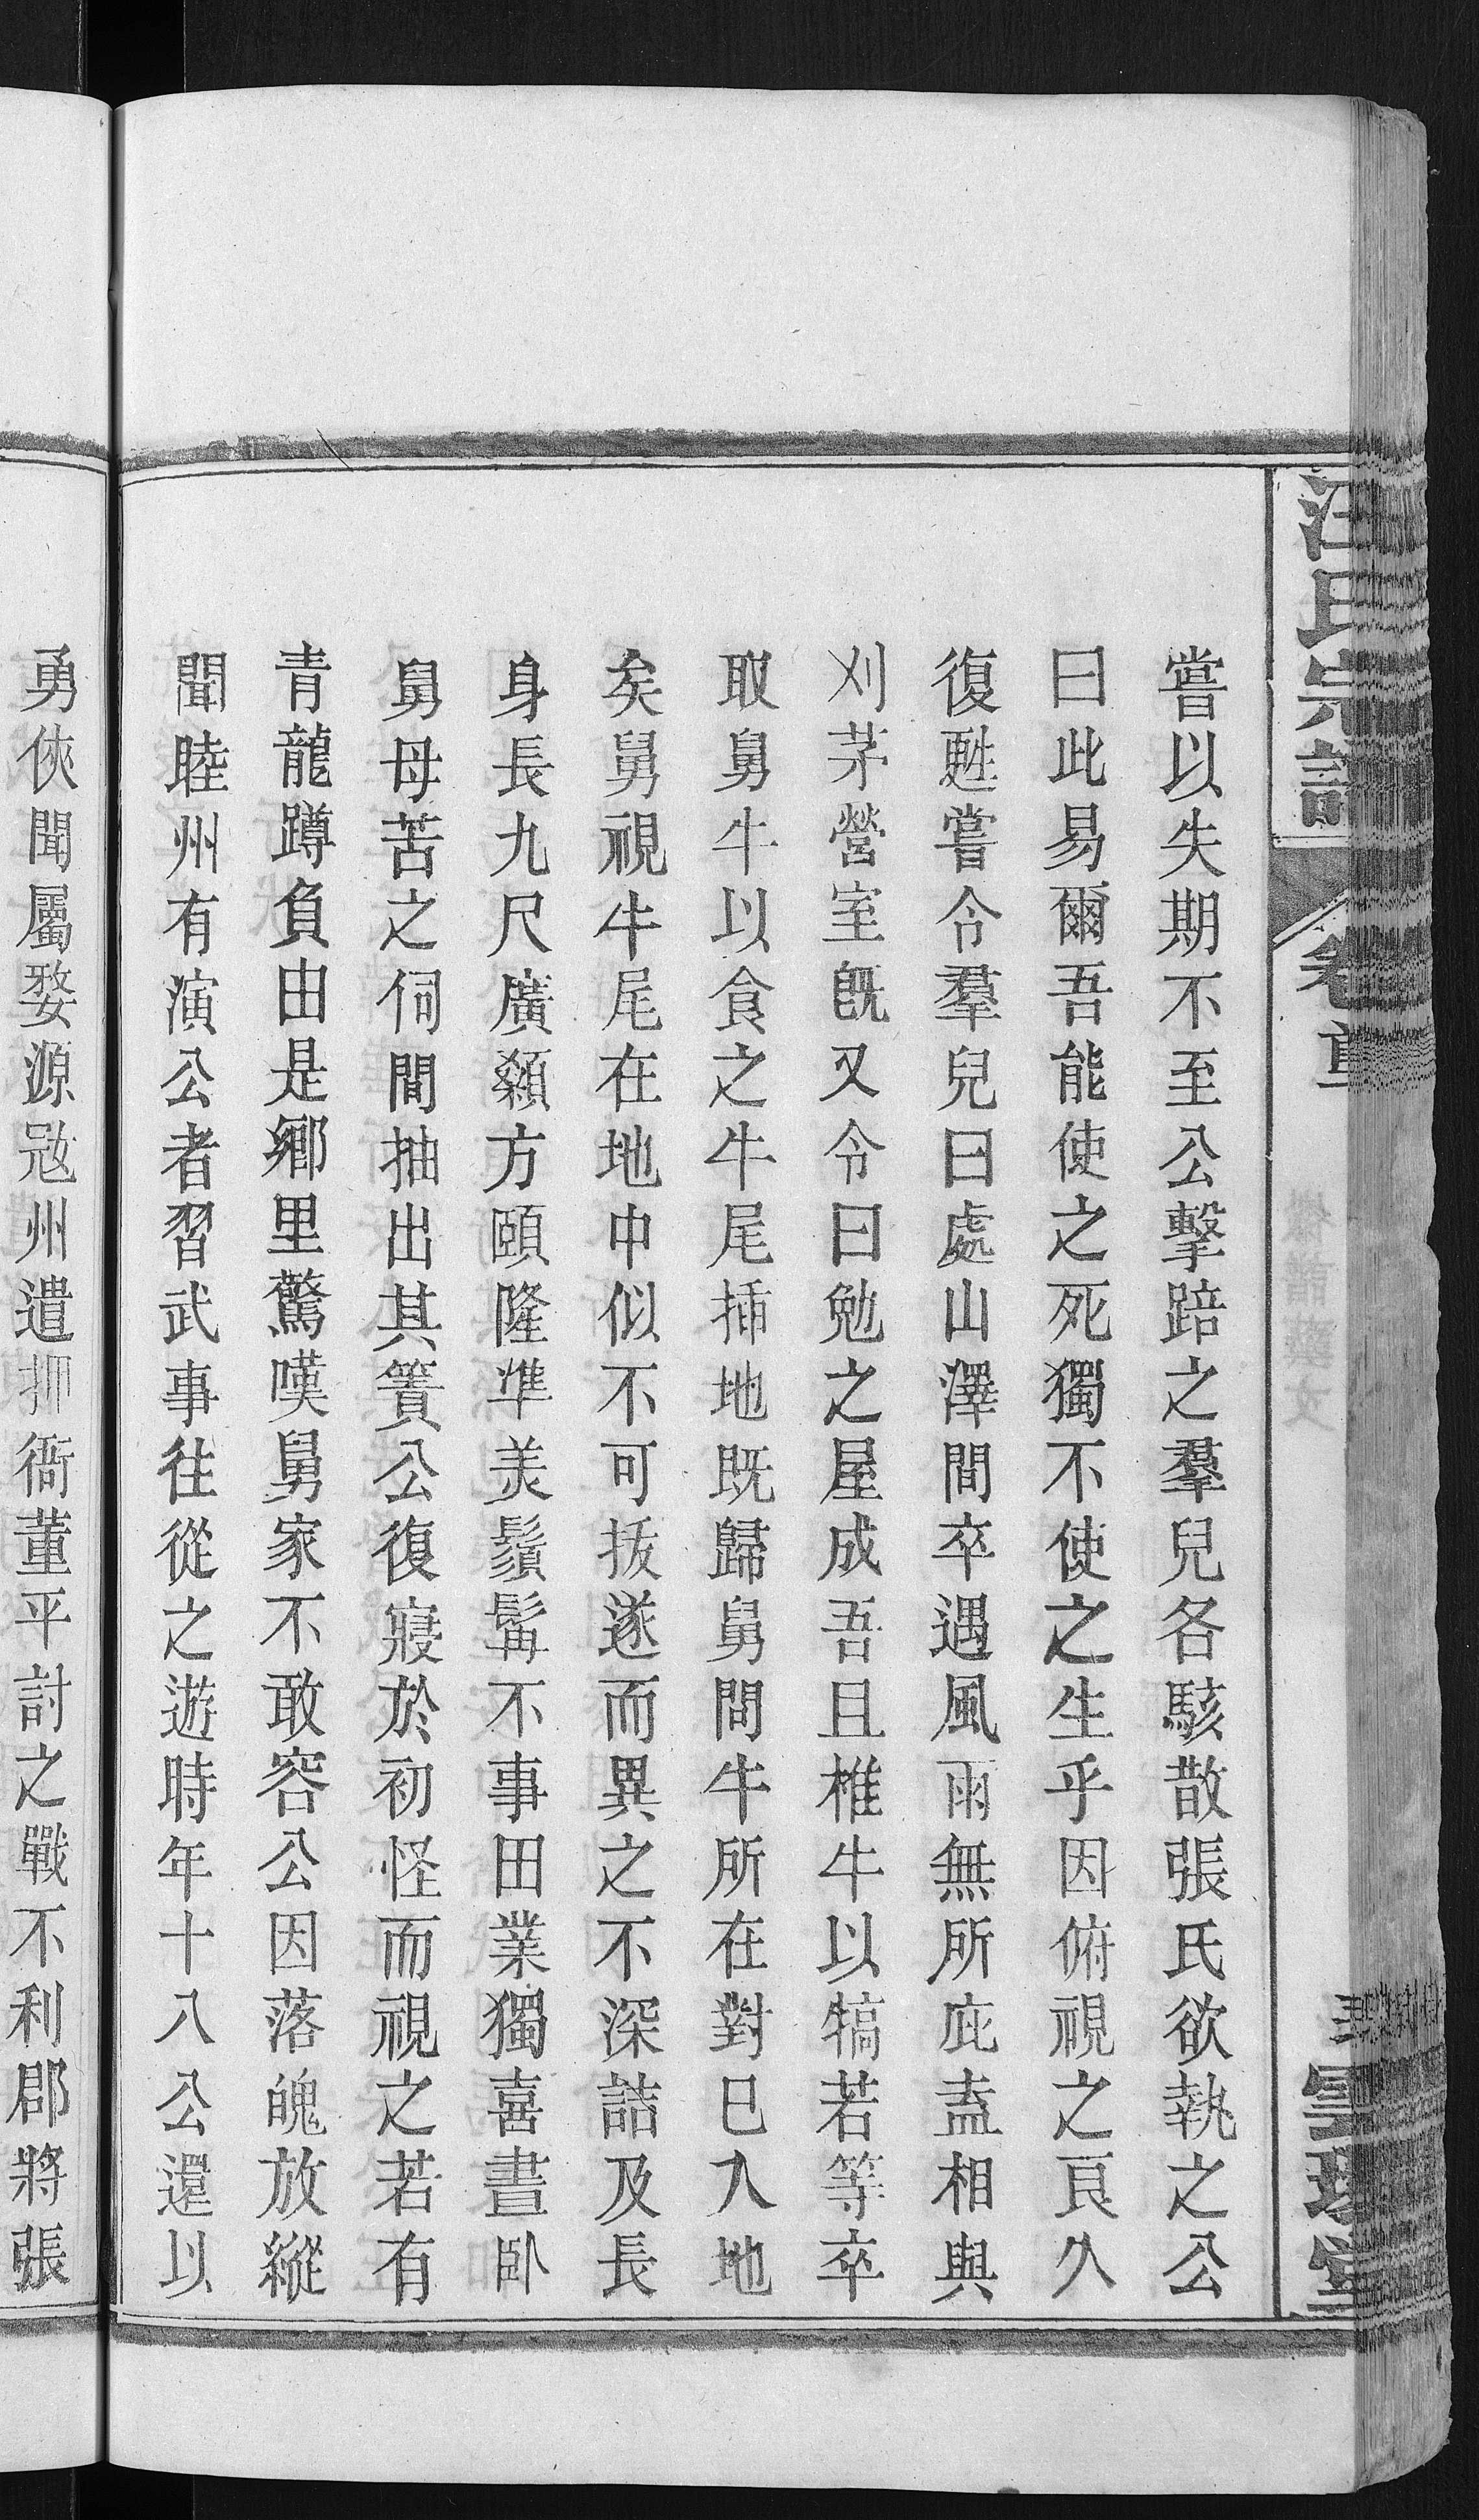 汪氏宗譜
卷首
嘗以失期不至公擊踣之羣兒各駭散張氏欲執之公
曰此易爾吾能使之死獨不使之生乎因俯視之良久
復甦嘗令羣兒曰處山澤間卒遇風雨無所庇盍相與
刈茅營室既又令曰勉之屋成吾且椎牛以犒若等卒
取舅牛以食之牛尾揷地既歸舅問牛所在對巳入地
矣舅視牛尾在地中似不可拔遂而異之不深詰及長
身長九尺廣顙方頤隆準美鬚髯不事田業獨喜晝卧
舅母苦之伺間抽出其簀公復寢於初怪而視之若有
青龍蹲負由是鄉里驚嘆舅家不敢容公因落魄放縱
聞睦州有演公者習武事往從之遊時年十八公還以
勇俠聞屬婺源宼州遣押衙董平討之戰不利郡將張